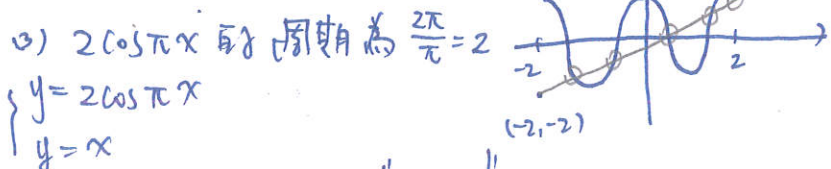 (3) 2cosπx 的週期為 2π/π = 2
y = 2cosπx
y = x
-2
2
(-2,-2)